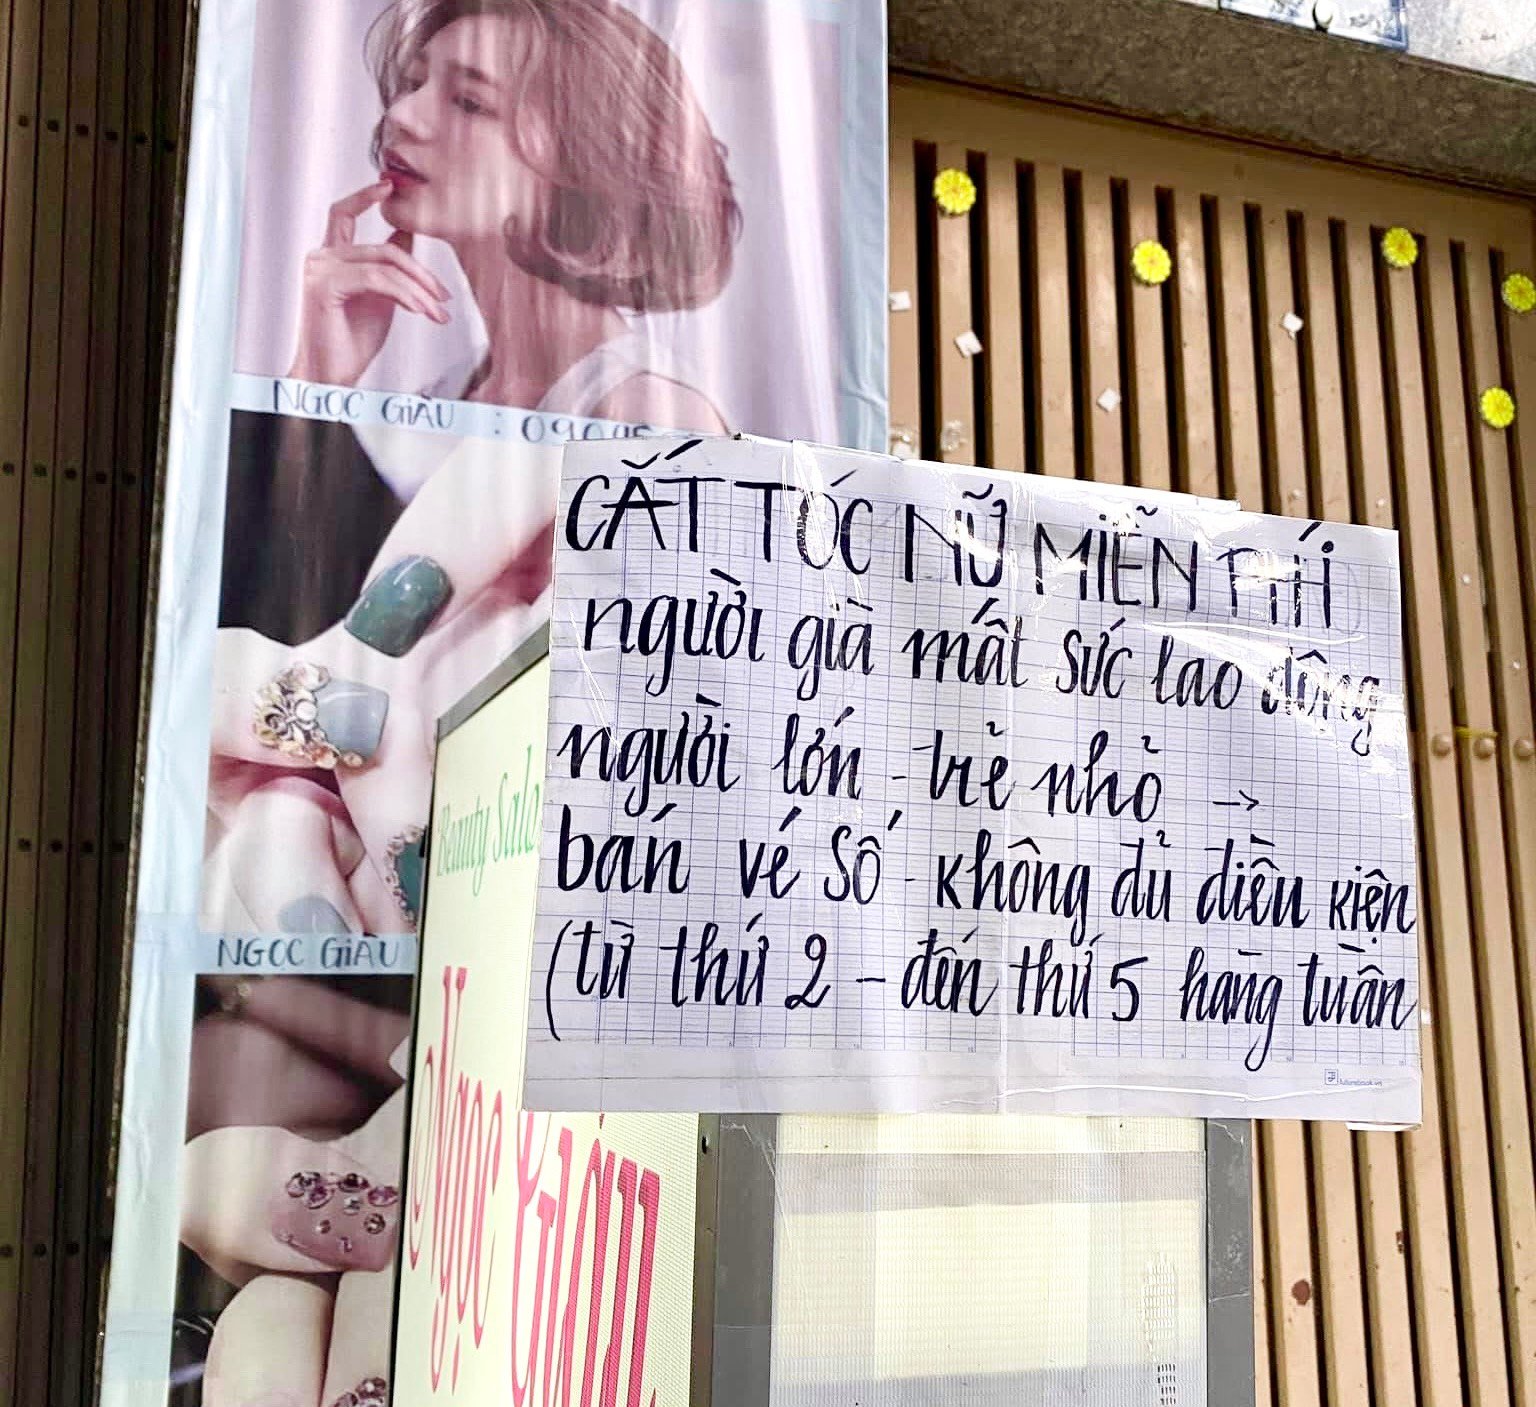 NGỌC GIÀU : 09095
CẮT TÓC NỮ MIỄN PHÍ
người già mất sức lao động
người lớn - trẻ nhỏ →
bán vé số - không đủ điều kiện
(từ thứ 2 - đến thứ 5 hàng tuần
NGỌC GIÀU
Beauty Salo
Ngọc Giàu